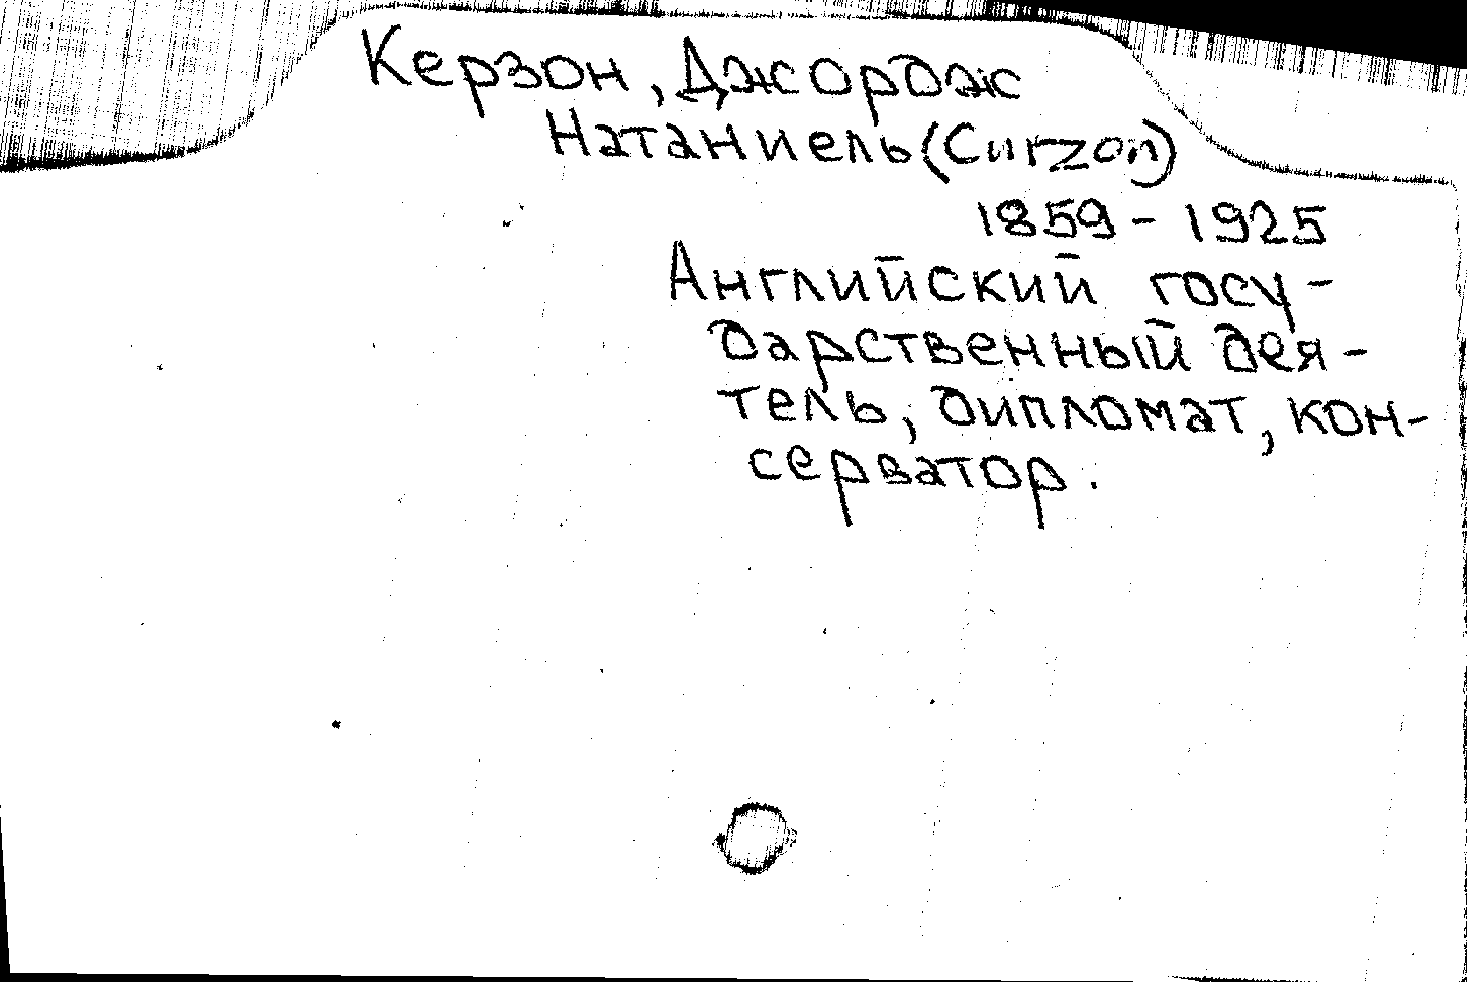 Керзон, Джордж
Натаниель (Curzon)
1859 - 1925
Английский госу-
дарственный дея-
тель, дипломат, кон-
серватор.